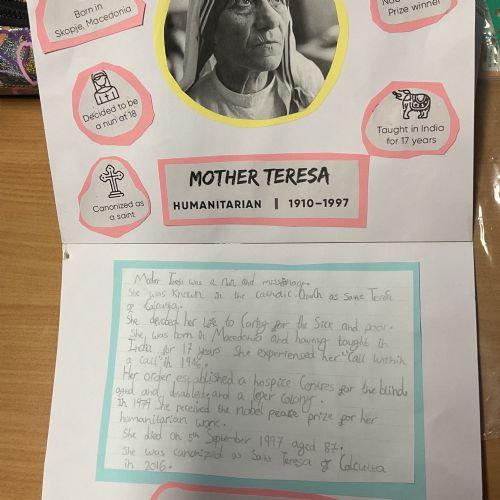 Born in
Skopje, Macedonia
Prize winner
Decided to be
a nun at 18
Taught in India
for 17 years
Canonized as
a saint
MOTHER TERESA
HUMANITARIAN | 1910–1997
Mother Teresa was a nun and
She was known in the catholic church as Saint Teresa
of Calcutta.
She devoted her life to caring for the sick and poor.
She was born in Macedonia and having taught in
India for 17 years She experienced her "call within
a call" in 1946.
Her order established a hospice Centres for the blind,
aged and disabled, and a leper colony.
In 1979 She received the nobel peace prize for her
humanitarian work.
She died on 5th September 1997 aged 87.
She was canonized as Saint Teresa of Calcutta
in 2016.